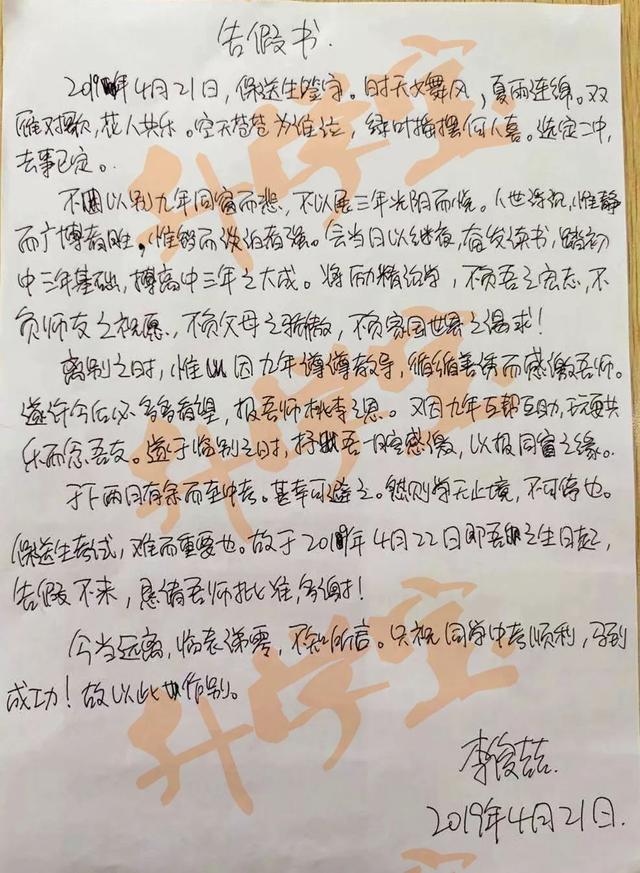 告假书.
2019年4月21日,保送生签字。时天女舞风,夏雨连绵。双
雁对摆歌,花人共乐。空天苍苍为谁泣,绿叶摇摆何人喜。选定二中,
去事已定。
不因以别九年同窗而悲,不以展三年光阴而悦。人世浮沉,惟静
而广博者胜,惟韧而淡泊者强。会当日以继夜,奋发读书,踏初
中三年基础,搏高中三年之大成。将励精治学,不负吾之宏志,不
负师友之祝愿,不负父母之骄傲,不负家国世界之渴求!
离别之时,惟以因九年谆谆教导,循循善诱而感激吾师。
遂许今后必多多看望,报吾师桃李之恩。又因九年互帮互助,玩耍共
乐而念吾友。遂于临别之时,抒吾一腔感激,以报同窗之缘。
于下两月有余而至中考。甚幸可避之。然则学无止境,不可停也。
保送生考试,难而重要也。故于2019年4月22日即吾之生日起,
告假不来,恳请吾师批准,多谢!
今当远离,临表涕零,不知所言。只祝同学中考顺利,马到
成功!故以此作别。
李俊喆.
2019年4月21日.
升学宝
升学宝
升学宝